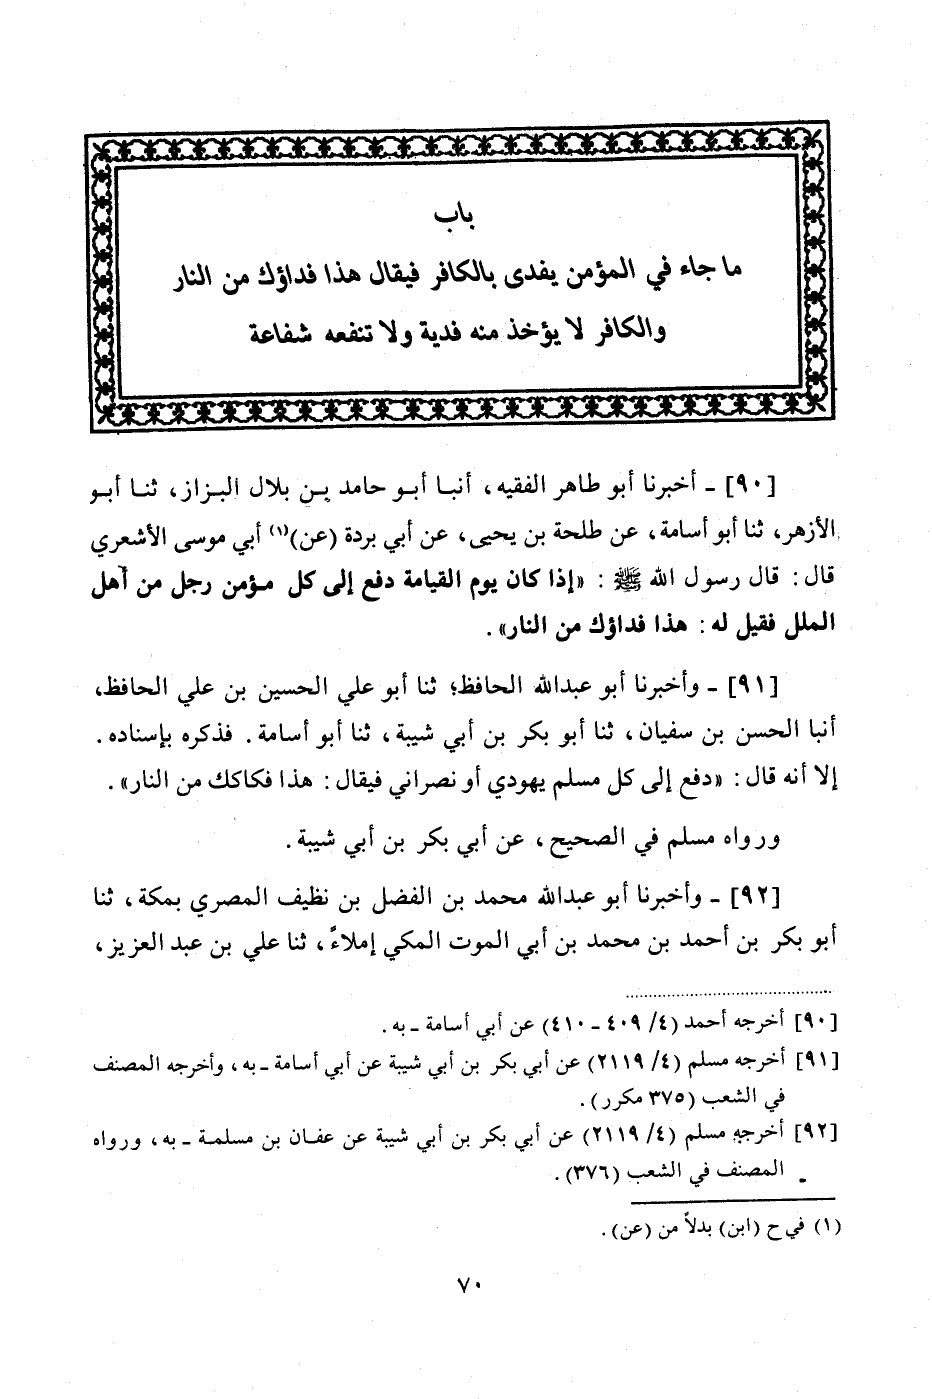 باب
ما جاء في المؤمن يفدى بالكافر فيقال هذا فداؤك من النار
والكافر لا يؤخذ منه فدية ولا تنفعه شفاعة
[٩٠] ـ أخبرنا أبو طاهر الفقيه، أنبـا أبـو حامد بـن بلال البـزاز، ثنـا أبـو
الأزهر، ثنا أبو أسامة، عن طلحة بن يحيى، عن أبي بردة (عن)(١) أبي موسى الأشعري
قال: قال رسول الله ﷺ : «إذا كان يوم القيامة دفع إلى كل مـؤمن رجل من أهل
الملل فقيل له: هذا فداؤك من النار».
[٩١] ـ وأخبرنا أبو عبدالله الحافظ؛ ثنا أبو علي الحسين بن علي الحافظ،
أنبا الحسن بن سفيان، ثنا أبو بكر بن أبي شيبة، ثنا أبو أسامة. فذكره بإسناده.
إلا أنه قال: «دفع إلى كل مسلم يهودي أو نصراني فيقال: هذا فكاكك من النار».
ورواه مسلم في الصحيح، عن أبي بكر بن أبي شيبة.
[٩٢] ـ وأخبرنا أبو عبدالله محمد بن الفضل بن نظيف المصري بمكة، ثنا
أبو بكر بن أحمد بن محمد بن أبي الموت المكي إملاءً، ثنا علي بن عبد العزيز،
[٩٠] أخرجه أحمد (٤/ ٤٠٩ ـ ٤١٠) عن أبي أسامة ـ به.
[٩١] أخرجه مسلم (٤/ ٢١١٩) عن أبي بكر بن أبي شيبة عن أبي أسامة ـ به، وأخرجه المصنف
في الشعب (٣٧٥ مكرر).
[٩٢] أخرجه مسلم (٤/ ٢١١٩) عن أبي بكر بن أبي شيبة عن عفان بن مسلمـة ـ به، ورواه
المصنف في الشعب (٣٧٦).
(١) في ح (ابن) بدلاً من (عن).
٧٠